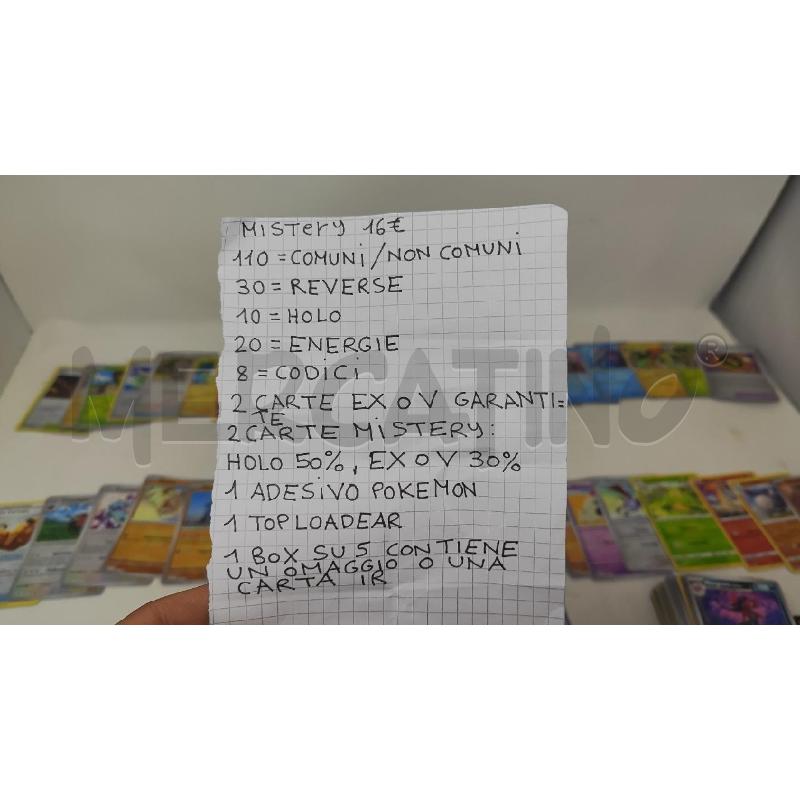 MISTERY 16€
110 = COMUNI / NON COMUNI
30 = REVERSE
10 = HOLO
20 = ENERGIE
8 = CODICI
2 CARTE EX O V GARANTI=
TE
2 CARTE MISTERY:
HOLO 50%, EX O V 30%
1 ADESIVO POKEMON
1 TOPLOADEAR
1 BOX SU 5 CONTIENE
UN OMAGGIO O UNA
CARTA IR
MERCATINO®